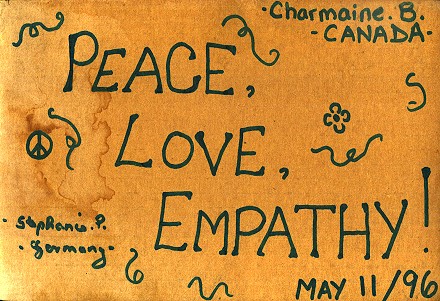 ·Charmaine. B.
-CANADA-
PEACE,
LOVE,
EMPATHY!
· Stephanie. P.
· Germany ·
MAY 11/96